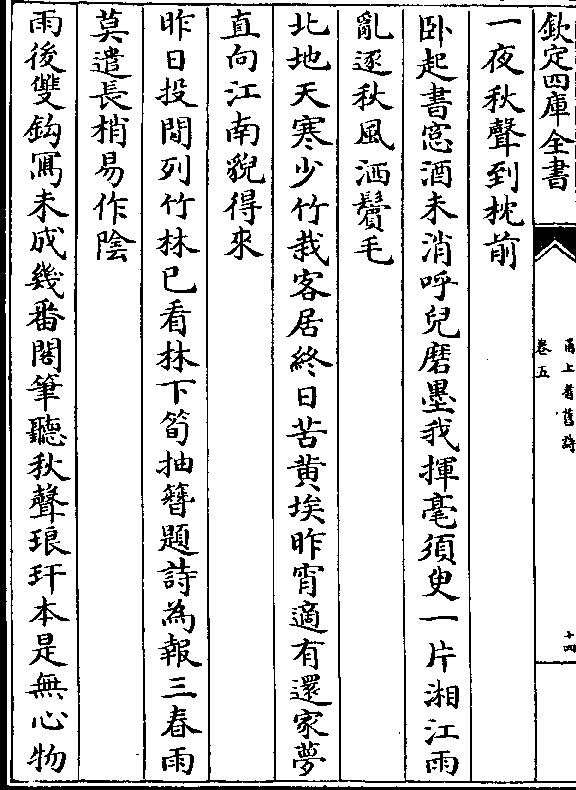 欽定四庫全書
甬上耆舊詩
卷五
十四
一夜秋聲到枕前
卧起書窓酒未消呼兒磨墨我揮毫須臾一片湘江雨
亂逐秋風洒鬢毛
北地天寒少竹栽客居終日苦黄埃昨宵適有還家夢
直向江南貌得來
昨日投閒列竹林已看林下筍抽簪題詩為報三春雨
莫遣長梢易作陰
雨後雙鈎寫未成幾番閣筆聽秋聲琅玕本是無心物